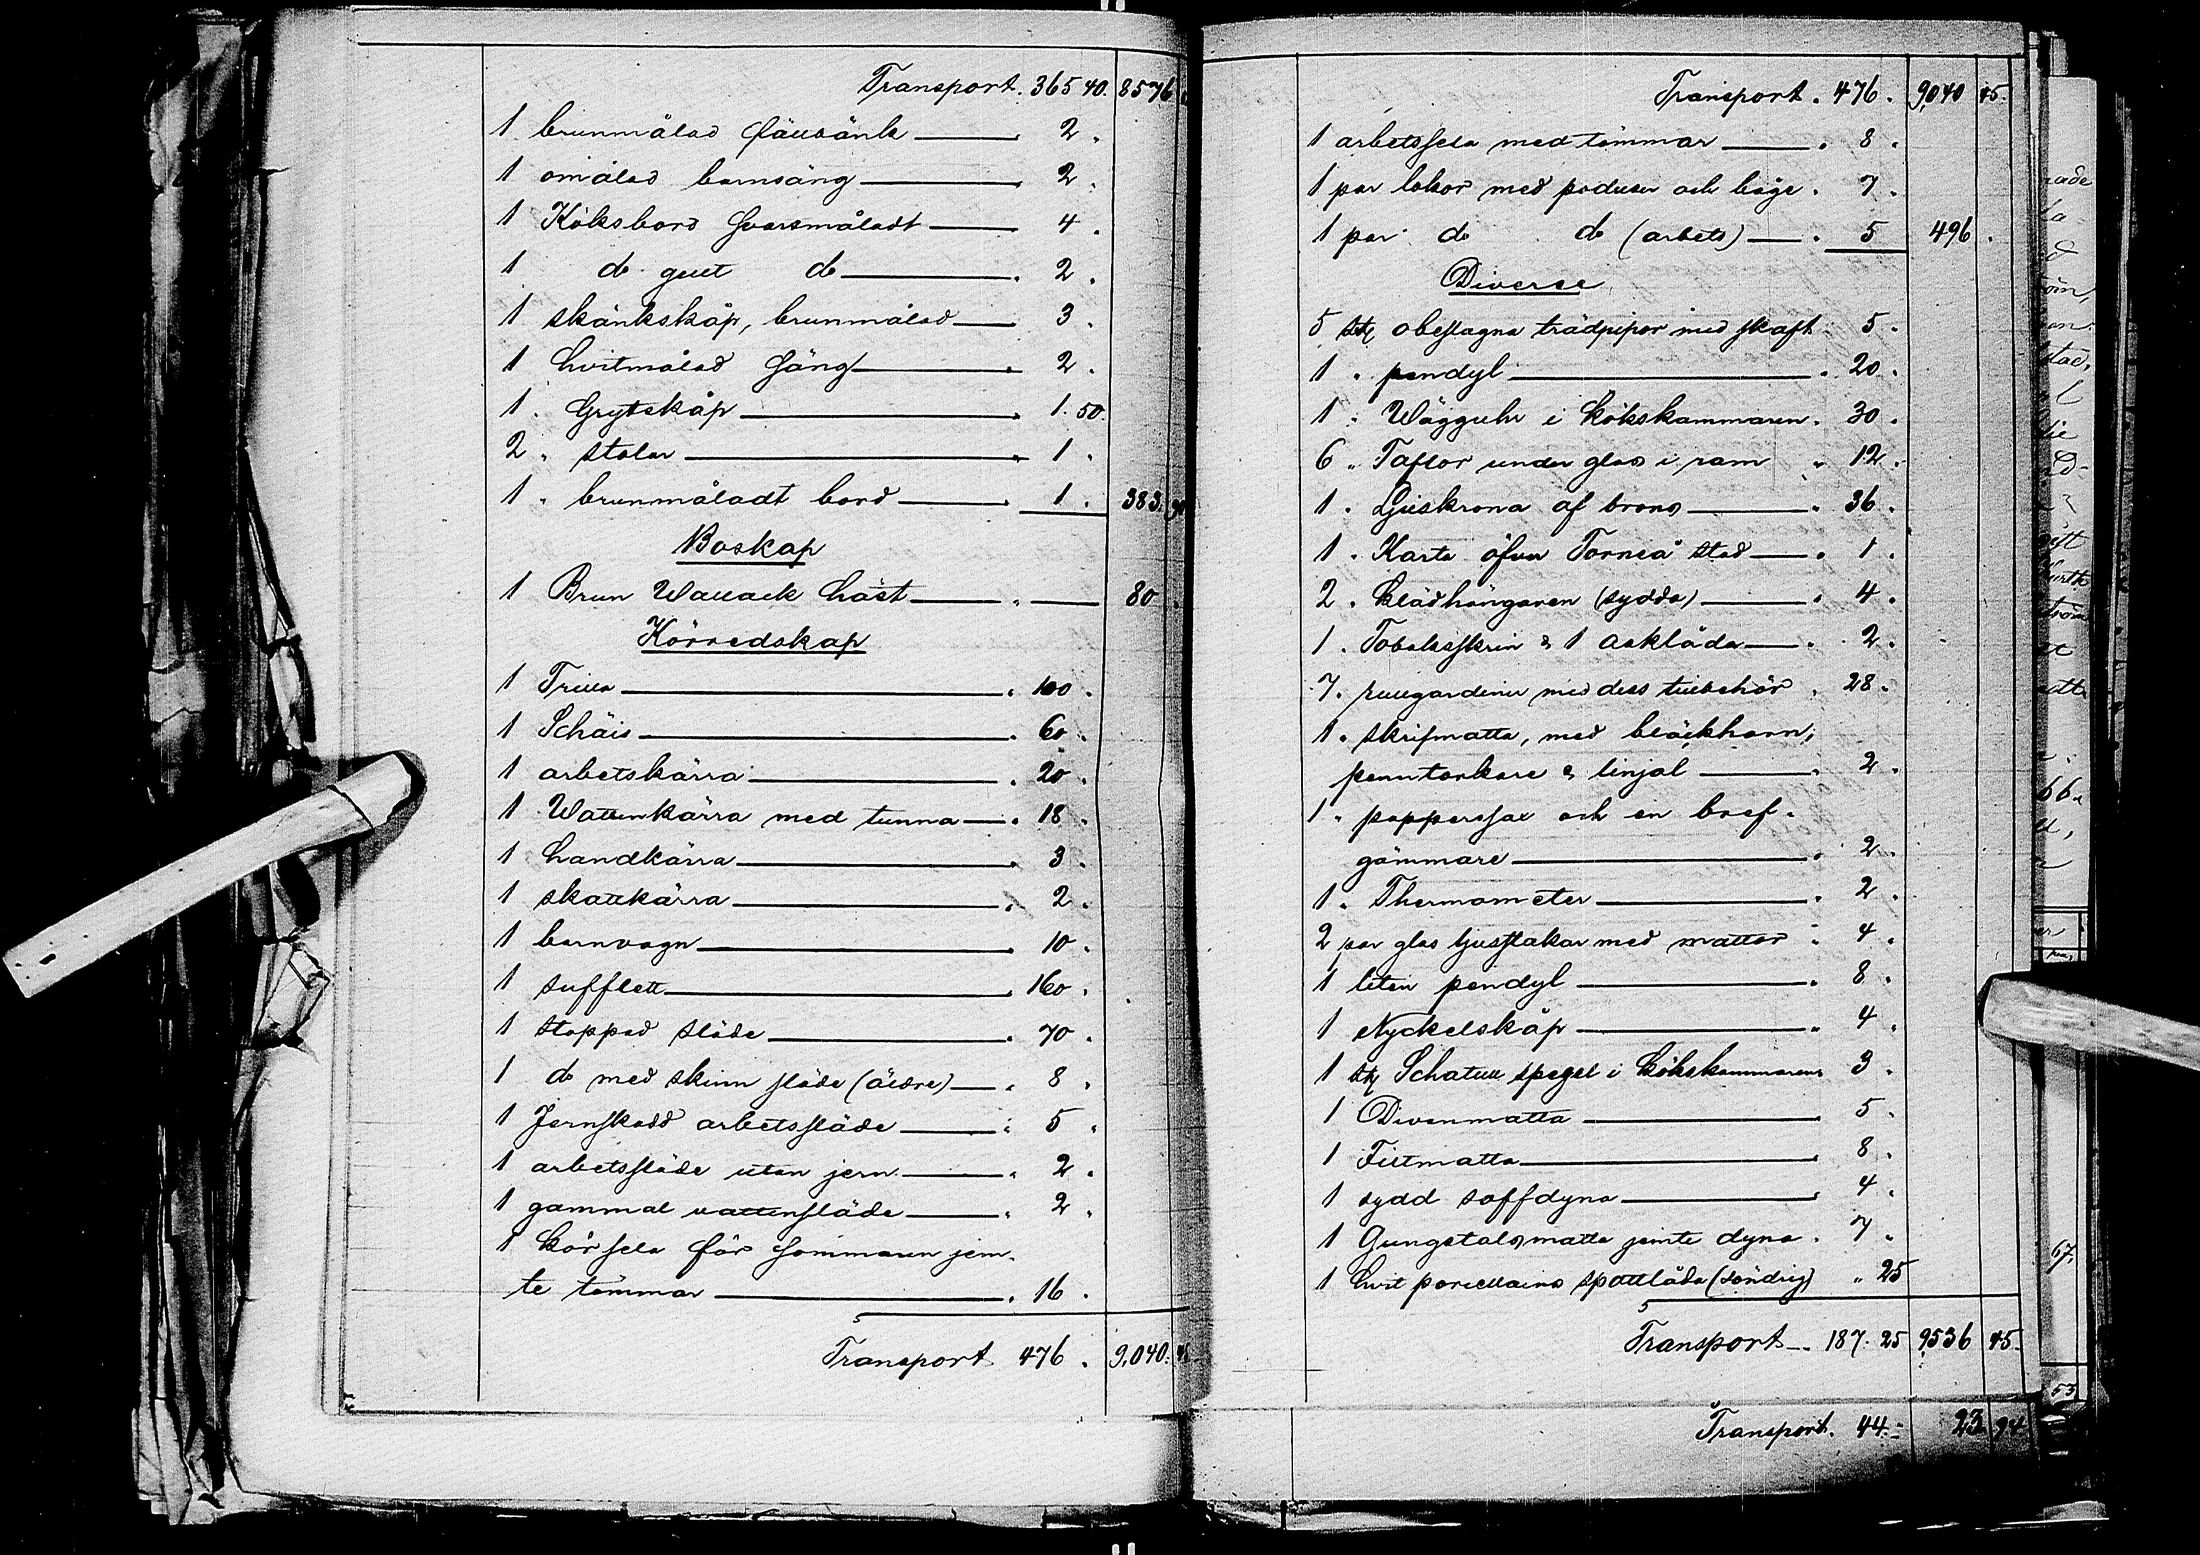 Transport. 365 40. 8576
1 brunmålad fällbänk — 2.
1 omålad barnsäng — 2.
1 Köksbord svartmåladt — 4.
1 do gult do — 2.
1 skänkskåp, brunmålad — 3.
1 hvitmålad säng — 2.
1. Grytskåp — 1. 50.
2 " stolar — 1.
1 " brunmåladt bord — 1. 383.
Boskap
1 Brun Wallack häst — 80
Körredskap
1 Trilla — 100.
1 Schäis — 60.
1 arbetskärra — 20.
1 Wattenkärra med tunna — 18.
1 handkärra — 3.
1 skottkärra — 2.
1 barnvagn — 10.
1 sufflett — 160.
1 stoppad släde — 70.
1 do med skinn släde (äldre) — 8.
1 Jernskodd arbetssläde — 5.
1 arbetssläde utan jern — 2.
1 gammal vattensläde — 2.
1 körsela för sommaren jem-
te tömmar — 16.
Transport 476. 9,040. 45
Transport. 476. 9,040 45.
1 arbetssela med tömmar — 8.
1 par lokor med poduser och båge. 7.
1 par do do (arbets) — 5 496.
Diverse
5 st. obeslagna trädpipor med skaft 5.
1 " pendyl — 20.
1 " Wägguhr i kökskammaren. 30.
6 " Taflor under glas i ram " 12.
1 " Ljuskrona af brons — 36.
1 " Karta öfver Torneå stad — 1.
2 " klädhängaren (sydda) — 4.
1 " Tobaksskrin & 1 asklåda — 2.
7 " rullgardiner med dess tillbehör. 28.
1 " skrifmatta, med bläckhorn,
penntorkare & linjal — 2.
1 " papperssax och en bref-
gömmare — 2.
1 " Thermometer — 2.
2 par glas ljusstakar med mattor " 4.
1 liten pendyl — 8.
1 Nyckelskåp — 4.
1 st. Schatull spegel i kökskammaren 3.
1 Divanmatta — 5.
1 Filtmatta — 8.
1 sydd soffdyna — 4.
1 Gungstolsmatta jemte dyna. 7.
1 hvit porcellains spottlåda (söndrig) " 25
Transport — 187. 25 9,536 45.
Transport. 44. 23 94